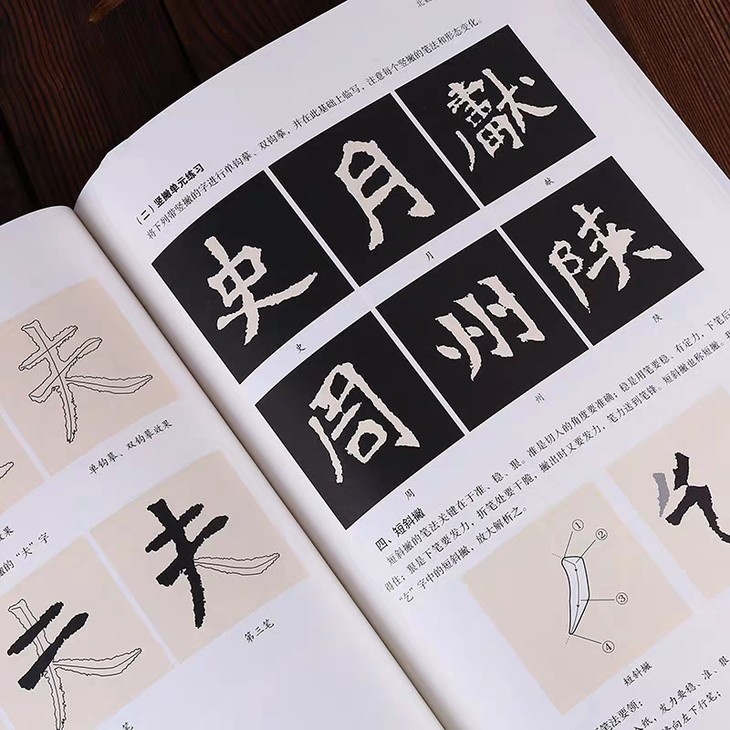 单钩摹、双钩摹效果
效果
字
第三笔
笔
(二)竖撇单元练习
将下列带竖撇的字进行单钩摹、双钩摹,并在此基础上临写,注意每个竖撇的笔法和形态变化。
史 月 獻
史 月 献
周 州 陝
周 州 陕
四、短斜撇
短斜撇的笔法关键在于准、稳、狠。准是切入的角度要准确;稳是用笔要稳,有定力,下笔后
得住;狠是下笔要发力,折笔处要干脆,撇出时又要发力,笔力送到笔锋。短斜撇也称短撇。
“乞”字中的短斜撇,放大解析之。
①
②
③
④
短斜撇
笔法要领:
入纸,发力要稳、准、狠
向左下行笔;